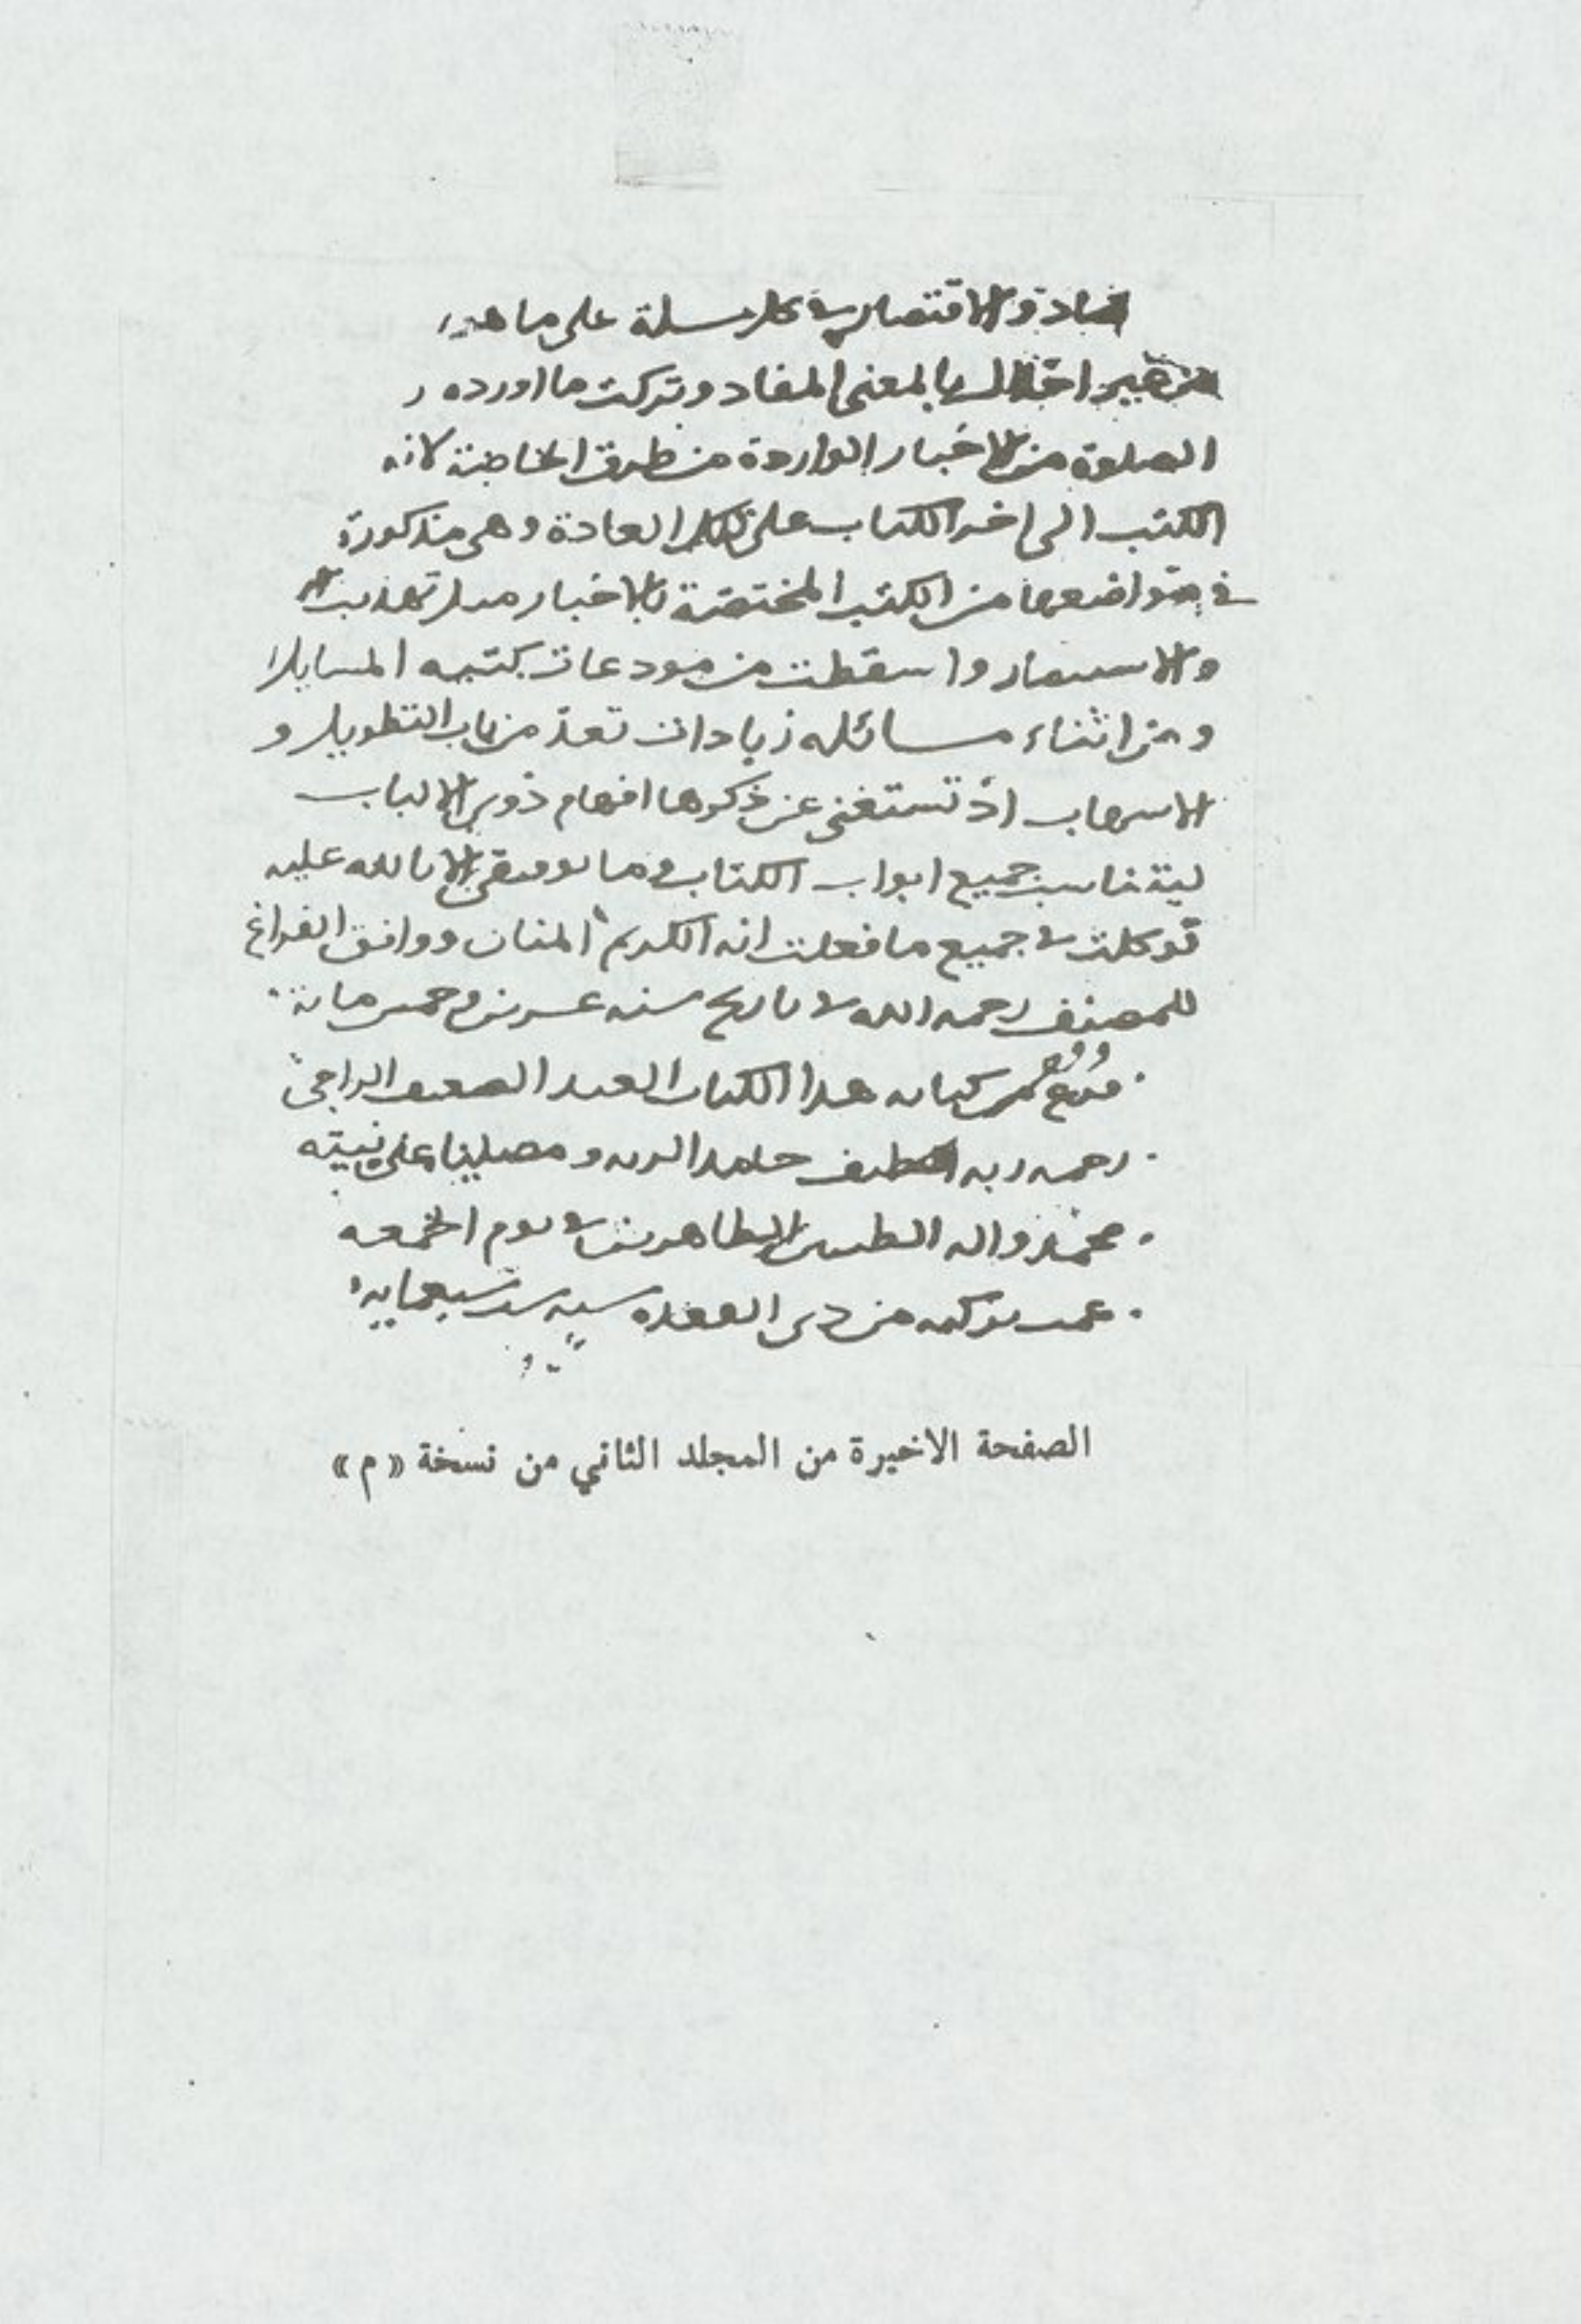 والاقتصار في كل مسلة على ما هو
من غير اخلال بالمعنى المفاد وتركت ما اورده
الصلوة من الاخبار الواردة من طرق الخاصة لانه
الكتب الى اخر الكتاب على تلك العادة وهى مذكورة
في مواضعها من الكتب المختصة بالاخبار مثل تهذيب
والاستبصار واسقطت من مودعات كتبه المسايل
ومن اثناء مسائله زيادات تعدّ من باب التطويل و
الاسهاب اذ تستغنى عن ذكرها افهام ذوي الالباب
ليتناسب جميع ابواب الكتاب وما توفيقى الا بالله عليه
توكلت في جميع ما فعلت انه الكريم المنان ووافق الفراغ
للمصنف رحمه الله في تاريخ سنه عشرين وخمس مائة
ووقع كتابه هذا الكتاب العبد الضعيف الراجى
رحمه ربه اللطيف حامدا لربه ومصليا على نبيّه
محمد واله الطيبين الطاهرين في يوم الجمعه
من ذى القعده سنه سبعمايه
الصفحة الاخيرة من المجلد الثاني من نسخة «م»